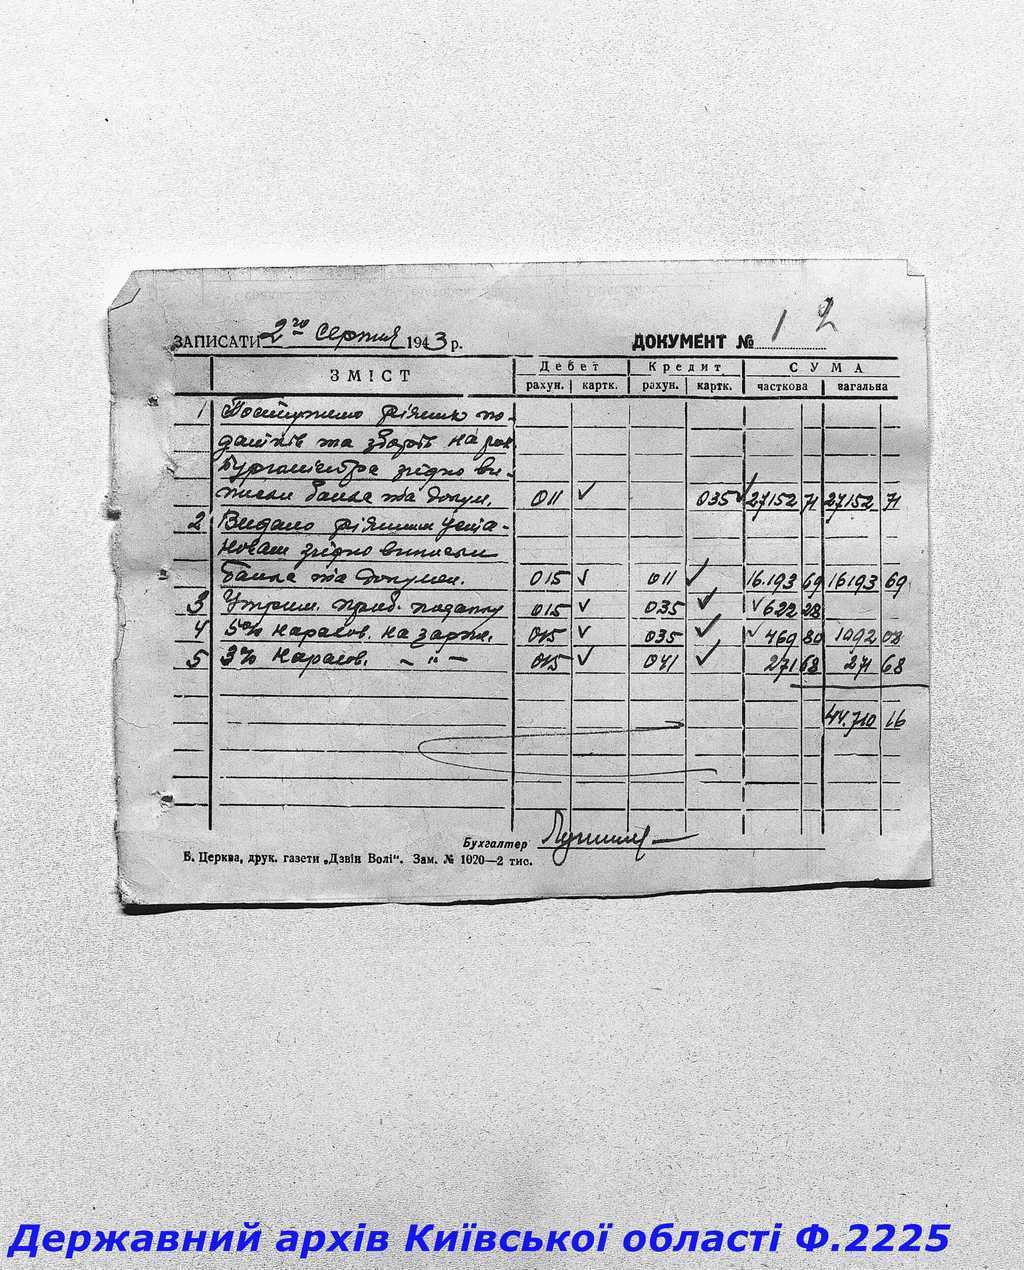 2
ЗАПИСАТИ 2го серпня 1943 р. ДОКУМЕНТ № 1
ЗМІСТ Дебет Кредит СУМА
рахун. картк. рахун. картк. часткова загальна
1 Поступило різних по-
датків та зборів на рах.
Бургомістра згідно ви-
писки банка та докум. 011 ✓ 035 ✓ 27152 71 27152 71
2 Видано різним уста-
новам згідно виписки
банка та докумен. 015 ✓ 011 ✓ 16.193 69 16193 69
3 Утрим. приб. податку 015 ✓ 035 ✓ ✓ 622 28
4 5% нарахов. на зарпл. 015 ✓ 035 ✓ ✓ 469 80 1092 08
5 3% нарахов. – " – 015 ✓ 041 ✓ 271 68 271 68
44.710 16
Бухгалтер
Б. Церква, друк. газети „Дзвін Волі“. Зам. № 1020—2 тис.
Державний архів Київської області Ф.2225